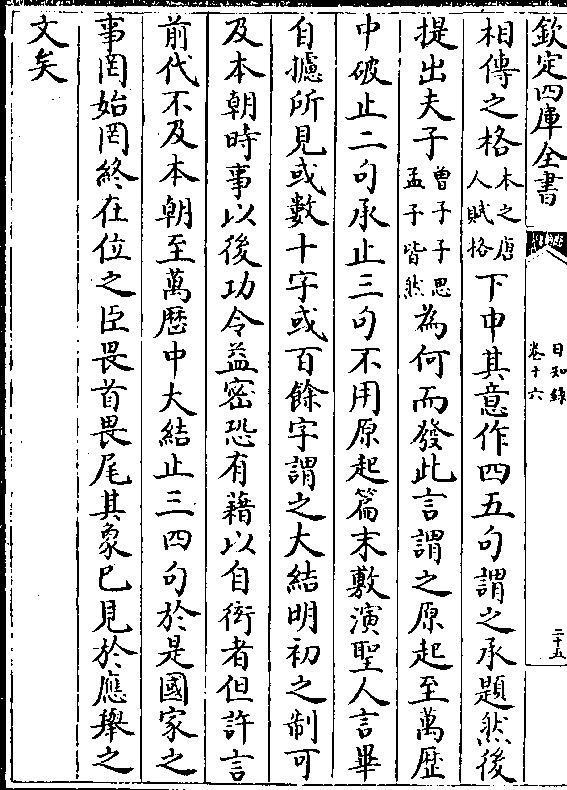 欽定四庫全書
日知錄
卷十六
二十五
相傳之格本之唐人賦格下申其意作四五句謂之承題然後
提出夫子曾子子思孟子皆然為何而發此言謂之原起至萬歴
中破止二句承止三句不用原起篇末敷演聖人言畢
自攄所見或數十字或百餘字謂之大結明初之制可
及本朝時事以後功令益密恐有藉以自衒者但許言
前代不及本朝至萬歴中大結止三四句於是國家之
事罔始罔終在位之臣畏首畏尾其象已見於應舉之
文矣